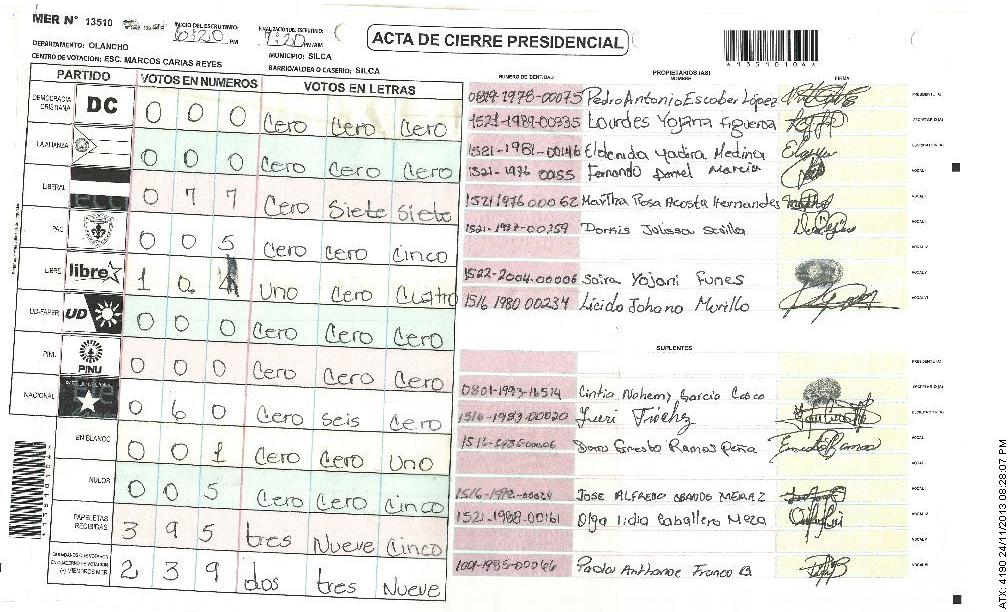 MER N° 13510
INICIO DEL ESCRUTINIO: 6:20 PM
FINALIZACION DEL ESCRUTINIO: 9:20 PM/AM
ACTA DE CIERRE PRESIDENCIAL
DEPARTAMENTO: OLANCHO
MUNICIPIO: SILCA
CENTRO DE VOTACION: ESC. MARCOS CARIAS REYES
BARRIO/ALDEA O CASERIO: SILCA
PARTIDO VOTOS EN NUMEROS VOTOS EN LETRAS
DEMOCRACIA CRISTIANA DC 0 0 0 Cero Cero Cero
LA ALIANZA 0 0 0 Cero Cero Cero
LIBERAL 0 7 7 Cero Siete Siete
PAC 0 0 5 Cero Cero Cinco
LIBRE libre 1 0 4 Uno Cero Cuatro
UD-FAPER UD 0 0 0 Cero Cero Cero
PINU PINU 0 0 0 Cero Cero Cero
NACIONAL 0 6 0 Cero seis Cero
EN BLANCO 0 0 1 Cero Cero Uno
NULOS 0 0 5 Cero Cero Cinco
PAPELETAS RECIBIDAS 3 9 5 tres Nueve Cinco
CIUDADANOS QUE VOTARON EN CUADERNO DE VOTACION (+) MIEMBROS MER 2 3 9 dos tres Nueve
NUMERO DE IDENTIDAD PROPIETARIOS (AS) NOMBRE FIRMA
0819-1978-00075 Pedro Antonio Escober López PRESIDENTE (A)
1521-1989-00335 Lourdes Yojana Figueroa SECRETARIO (A)
1521-1981-00146 Eldenida Yadira Medina ESCRUTADOR (A)
1521-1976 0055 Fernando Daniel Marcia VOCAL I
1521 1976 00062 Maritha Rosa Acosta Hernandes
1521-1987-00259 Dorkis Julissa Sevilla
1522-2004-00006 Saira Yojani Funes VOCAL V
1516 1980 00234 Licida Johana Murillo VOCAL VI
SUPLENTES
PRESIDENTE (A)
0801-1993-16514 Cintia Nohemy Garcia Cosco SECRETARIO (A)
1516-1983-00020 ESCRUTADOR (A)
Ernesto Ramos Peña
JOSE ALFREDO OBANDO MERAZ
1521-1988-00161 Olga lidia Caballero Meza
Paola Anthonae Franco B
ATX: 4190 24/11/2013 08:28:07 PM